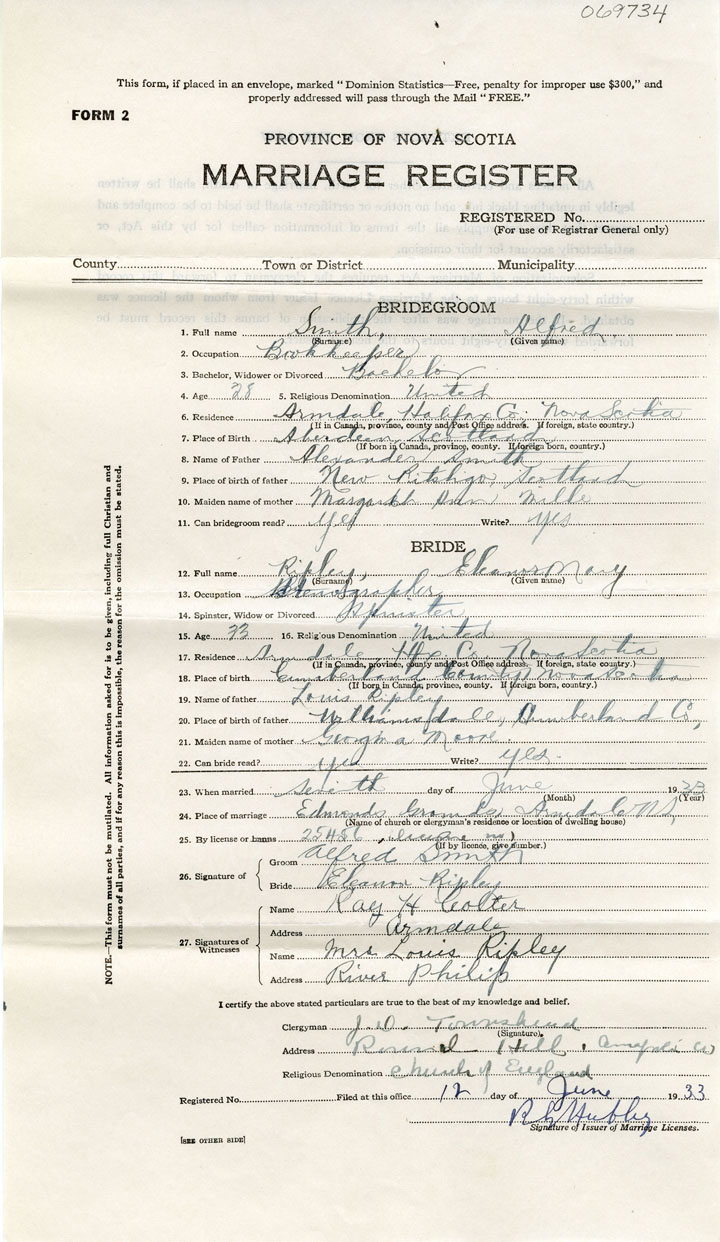 069734
This form, if placed in an envelope, marked "Dominion Statistics—Free, penalty for improper use $300," and
properly addressed will pass through the Mail "FREE."
FORM 2
PROVINCE OF NOVA SCOTIA
MARRIAGE REGISTER
REGISTERED No.
(For use of Registrar General only)
County Town or District Municipality
BRIDEGROOM
1. Full name Smith, Alfred
(Surname) (Given name)
2. Occupation Bookkeeper
3. Bachelor, Widower or Divorced Bachelor
4. Age 28 5. Religious Denomination United
6. Residence Armdale, Halifax Co. Nova Scotia
(If in Canada, province, county and Post Office address. If foreign, state country.)
7. Place of Birth Aberdeen Scotland
(If born in Canada, province, county. If foreign born, country.)
8. Name of Father Alexander Smith
9. Place of birth of father New Scotland
10. Maiden name of mother Margaret Ann
11. Can bridegroom read? Yes Write? Yes
BRIDE
12. Full name Ripley, Eleanor Mary
(Surname) (Given name)
13. Occupation Stenographer
14. Spinster, Widow or Divorced Spinster
15. Age 33 16. Religious Denomination United
17. Residence Armdale, Hfx Co. Nova Scotia
(If in Canada, province, county and Post Office address. If foreign, state country.)
18. Place of birth Cumberland County Nova Scotia
(If born in Canada, province, county. If foreign born, country.)
19. Name of father Louis Ripley
20. Place of birth of father Williamsdale, Cumberland Co,
21. Maiden name of mother Georgina Moore
22. Can bride read? yes Write? yes.
23. When married day of June 1933
(Month) (Year)
24. Place of marriage Edmonds Grounds, Armdale N.S,
(Name of church or clergyman's residence or location of dwelling house)
25. By license or banns 25486
(If by licence, give number.)
26. Signature of Groom Alfred Smith
Bride Eleanor Ripley
27. Signatures of Witnesses Name Ray H Colter
Address Armdale
Name Mrs Louis Ripley
Address River Philip
I certify the above stated particulars are true to the best of my knowledge and belief.
Clergyman J. D. Townshend
(Signature).
Address Round Hill,
Religious Denomination Church of England
Registered No. Filed at this office 12 day of June 1933
Signature of Issuer of Marriage Licenses.
[SEE OTHER SIDE]
NOTE.—This form must not be mutilated. All information asked for is to be given, including full Christian and
surnames of all parties, and if for any reason this is impossible, the reason for the omission must be stated.